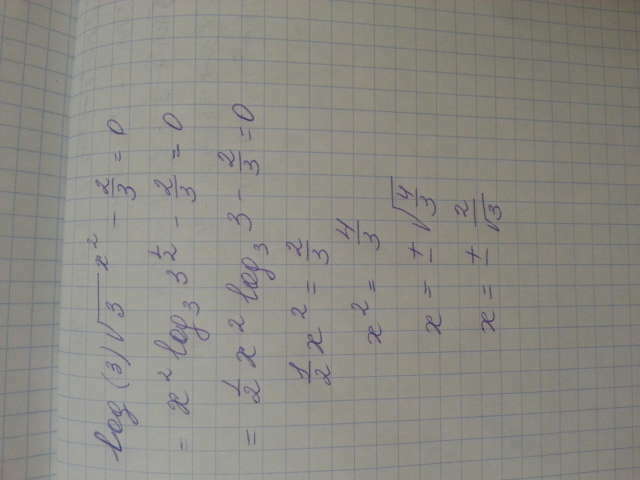 log(3)√3 x² - 2/3 = 0
= x² log₃ 3^1/2 - 2/3 = 0
= 1/2 x² log₃ 3 - 2/3 = 0
1/2 x² = 2/3
x² = 4/3
x = ± √4/3
x = ± 2/√3